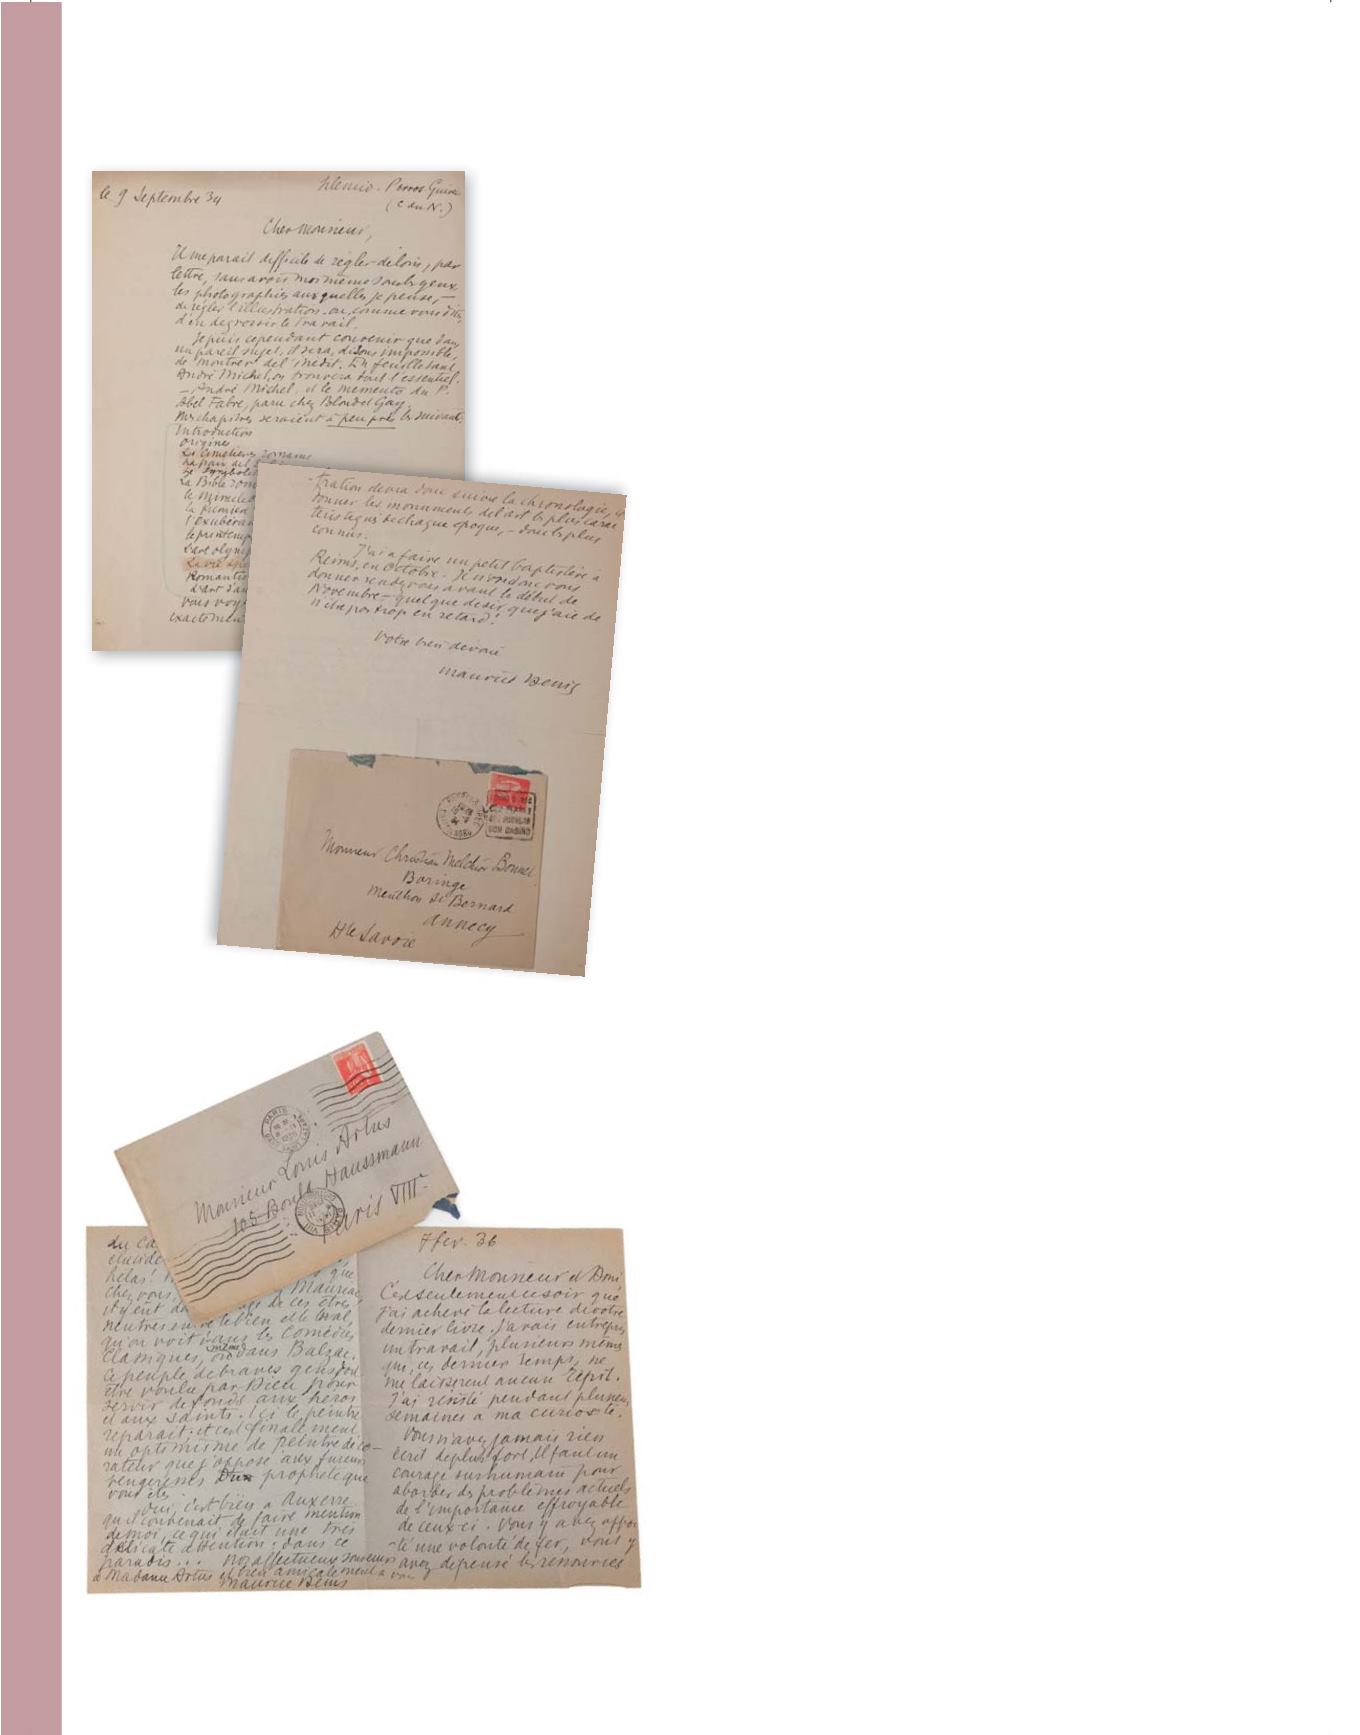 le 9 Septembre 34
Silencio. Perros Guirec
(C du N.)
Cher Monsieur,
Il me parait difficile de régler de loin, par
lettre, sans avoir moi même sous les yeux
les photographies auxquelles je pense, –
de régler l'illustration ou, comme vous dites,
d'en degrossir le travail.
Je puis cependant convenir que dans
un pareil sujet, il sera, disons impossible,
de montrer de l'inédit. En feuilletant
André Michel, on trouvera tout l'essentiel.
– André Michel, et le memento du P.
Abel Fabre, paru chez Bloud et Gay.
Mes chapitres seraient à peu près les suivants:
Introduction
Origines
Les Cimetières romains
La paix de l'
Le Symbolis
La Bible rom
le Miracle
la premier
l'Exubéra
le printemp
L'art olymp
La vie
Romantis
L'art d'au
Vous voy
exactement
tration devra donc suivre la chronologie, et
donner les monuments de l'art les plus carac
téristiques de chaque époque, – donc les plus
connus.
J'ai à faire un petit baptistère à
Reims, en Octobre. Je n'ose donc vous
donner rendez vous avant le début de
Novembre – quelque désir que j'aie de
n'être pas trop en retard!
Votre bien dévoué
Maurice Denis
Monsieur Christian Melchior Bonnet
Boringe
Menthon St Bernard
Annecy
Hte Savoie
PARIS
Monsieur Louis Artus
105 Bould Haussmann
Paris VIII e
du Ca
elucide
helas! que
Chez vous, Mauriac
il y eut de ces êtres
neutres entre le bien et le mal,
qu'on voit dans les Comédies
Classiques, ou même dans Balzac.
Ce peuple de braves gens doit
être voulu par Dieu pour
servir de fonds aux héros
et aux saints. Ici le peintre
reparait: et c'est finalement
un optimisme de Peintre déco-
rateur que j'oppose aux fureurs
vengeresses du prophète que
vous êtes.
Oui, c'est bien à Auxerre
qu'il convenait de faire mention
de moi, ce qui était une très
délicate attention: dans ce
paradis... Nos affectueux souvenirs
à Madame Artus et bien amicalement à vous
Maurice Denis
7 fev. 36
Cher Monsieur et Ami
C'est seulement ce soir que
j'ai achevé la lecture de votre
dernier livre. J'avais entrepris
un travail, plusieurs même
qui, ces derniers temps, ne
me laissèrent aucun répit.
J'ai résisté pendant plusieurs
semaines à ma curiosité.
Vous n'avez jamais rien
écrit de plus fort, Il faut un
courage surhumain pour
aborder des problèmes actuels
de l'importance effroyable
de ceux-ci. Vous y avez appor
-té une volonté de fer, vous y
avez dépensé les ressources